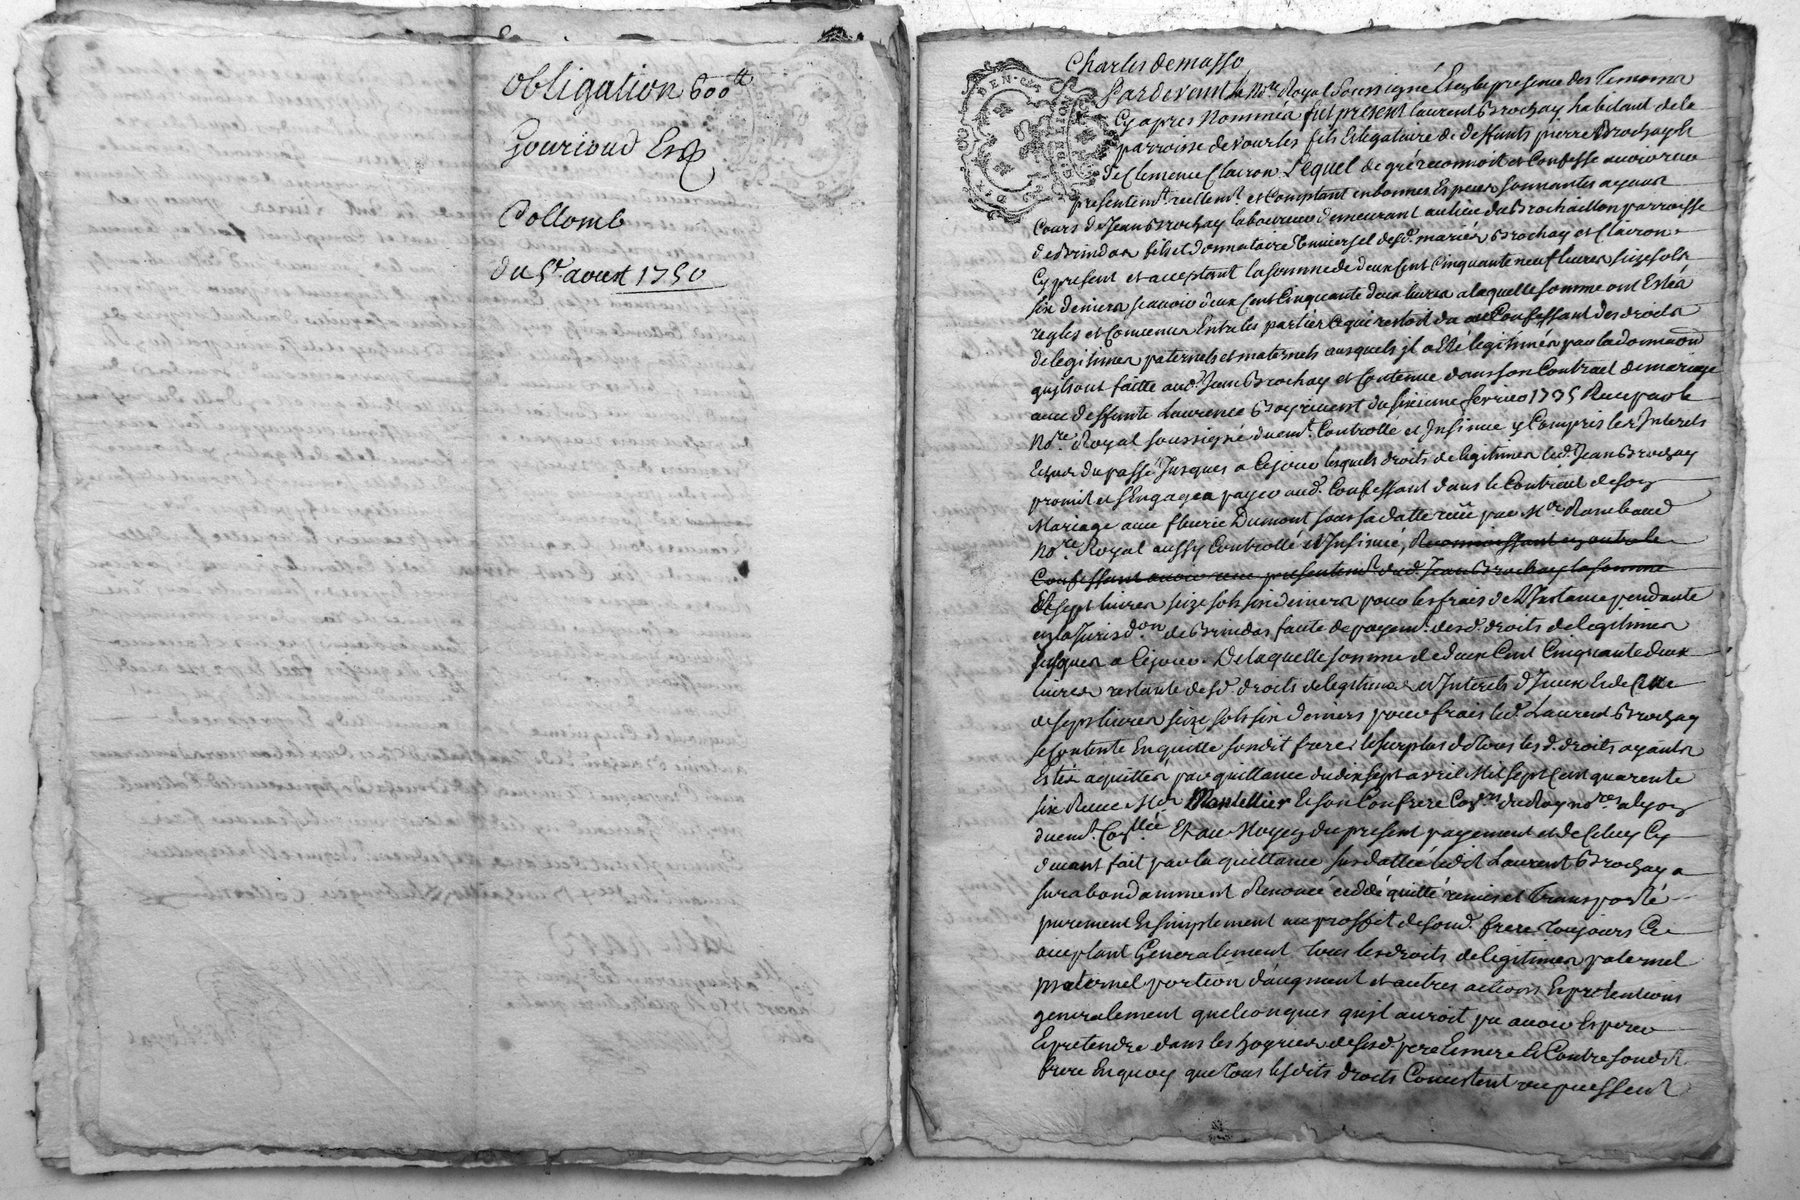 obligation 600tt
Gourioud Esq
Collomb
du 5e aoust 1750
Charles demasso
Pardevant le Nore Royal soussigné Et en la presence des Temoins
Cy apres Nommés fut present laurent Brochay habitant de la
parroisse de Vourles fils Et legataire de deffunts pierre Brochay et
de Clemence Clairon Lequel de gré reconnoit et Confesse avoir receu
presentemt reellemt et Comptant en bonnes Especes sonnantes ayant
Cours de Jean Brochay laboureur demeurant au lieu du Brochaillon parroisse
de Brindas fils et donnataire universel desd. mariés Brochay et Clairon
Cy present et acceptant la somme de deux Cent Cinquante neuf livres seize sols
six deniers scavoir deux Cent Cinquante deux livres a laquelle somme ont Estés
reglés et Convenus Entre les parties Ce qui restoit du au Confessant des droits
de legitimes paternels et maternels ausquels jl a Eté legitimés par la donnaon
quils ont faitte aud. Jean Brochay et Contenue dans son Contract de mariage
avec deffunte Laurence du sixieme fevrier 1735 Receu par le
Nore Royal soussigné duemt. Controllé et Insinué y Compris les Interets
Echus du passé Jusques a Cejour lesquels droits de legitimes led. Jean Brochay
promit et s'Engagea payer aud. Confessant dans le Contract de son
Mariage avec fleurie Dumont sous sa datte receu par Me Rambaud
Nore Royal aussy Controllé et Insinué, Reconnoissant en outre le
Confessant avoir receu presentemt. dud. Jean Brochay la somme
Et sept livres seize sols six deniers pour les frais de L'Instance pendante
en la Jurisdon de Brindas faute de payemt. desd. droits de legitimes
Jusques a Cejour. De laquelle somme de deux Cent Cinquante deux
livres restante desd. droits de legitimes et Interets d'Iceux et de Celle
de sept livres seize sols six deniers pour frais led. Laurent Brochay
se Contente En quitte sondit frere, le surplus de tous lesd. droits ayants
Estés aquittés par quittance du dix sept avril Mil sept Cent quarente
six Receue Me Montellier et son Confrere Coners du Roy nores a Lyon
duemt. Conllée Et au Moyen du present payement et de Celuy Cy
devant fait par la quittance susdattée ledit Laurent Brochay a
surabondamment Renoncé cedé quitté remis et Transporté
purement et simplement au proffit de sond. frere toujours Ce
acceptant Generalement tous les droits de legitimes paternel
maternel portion d'augment et autres actions Et pretentions
generalement quelconques qu'jl auroit pu avoir Esperer
Et pretendre dans les hoyries de sesd. pere Et mere Et Contre sondit
frere En quoy que tous lesdits droits Consistent ou puissent